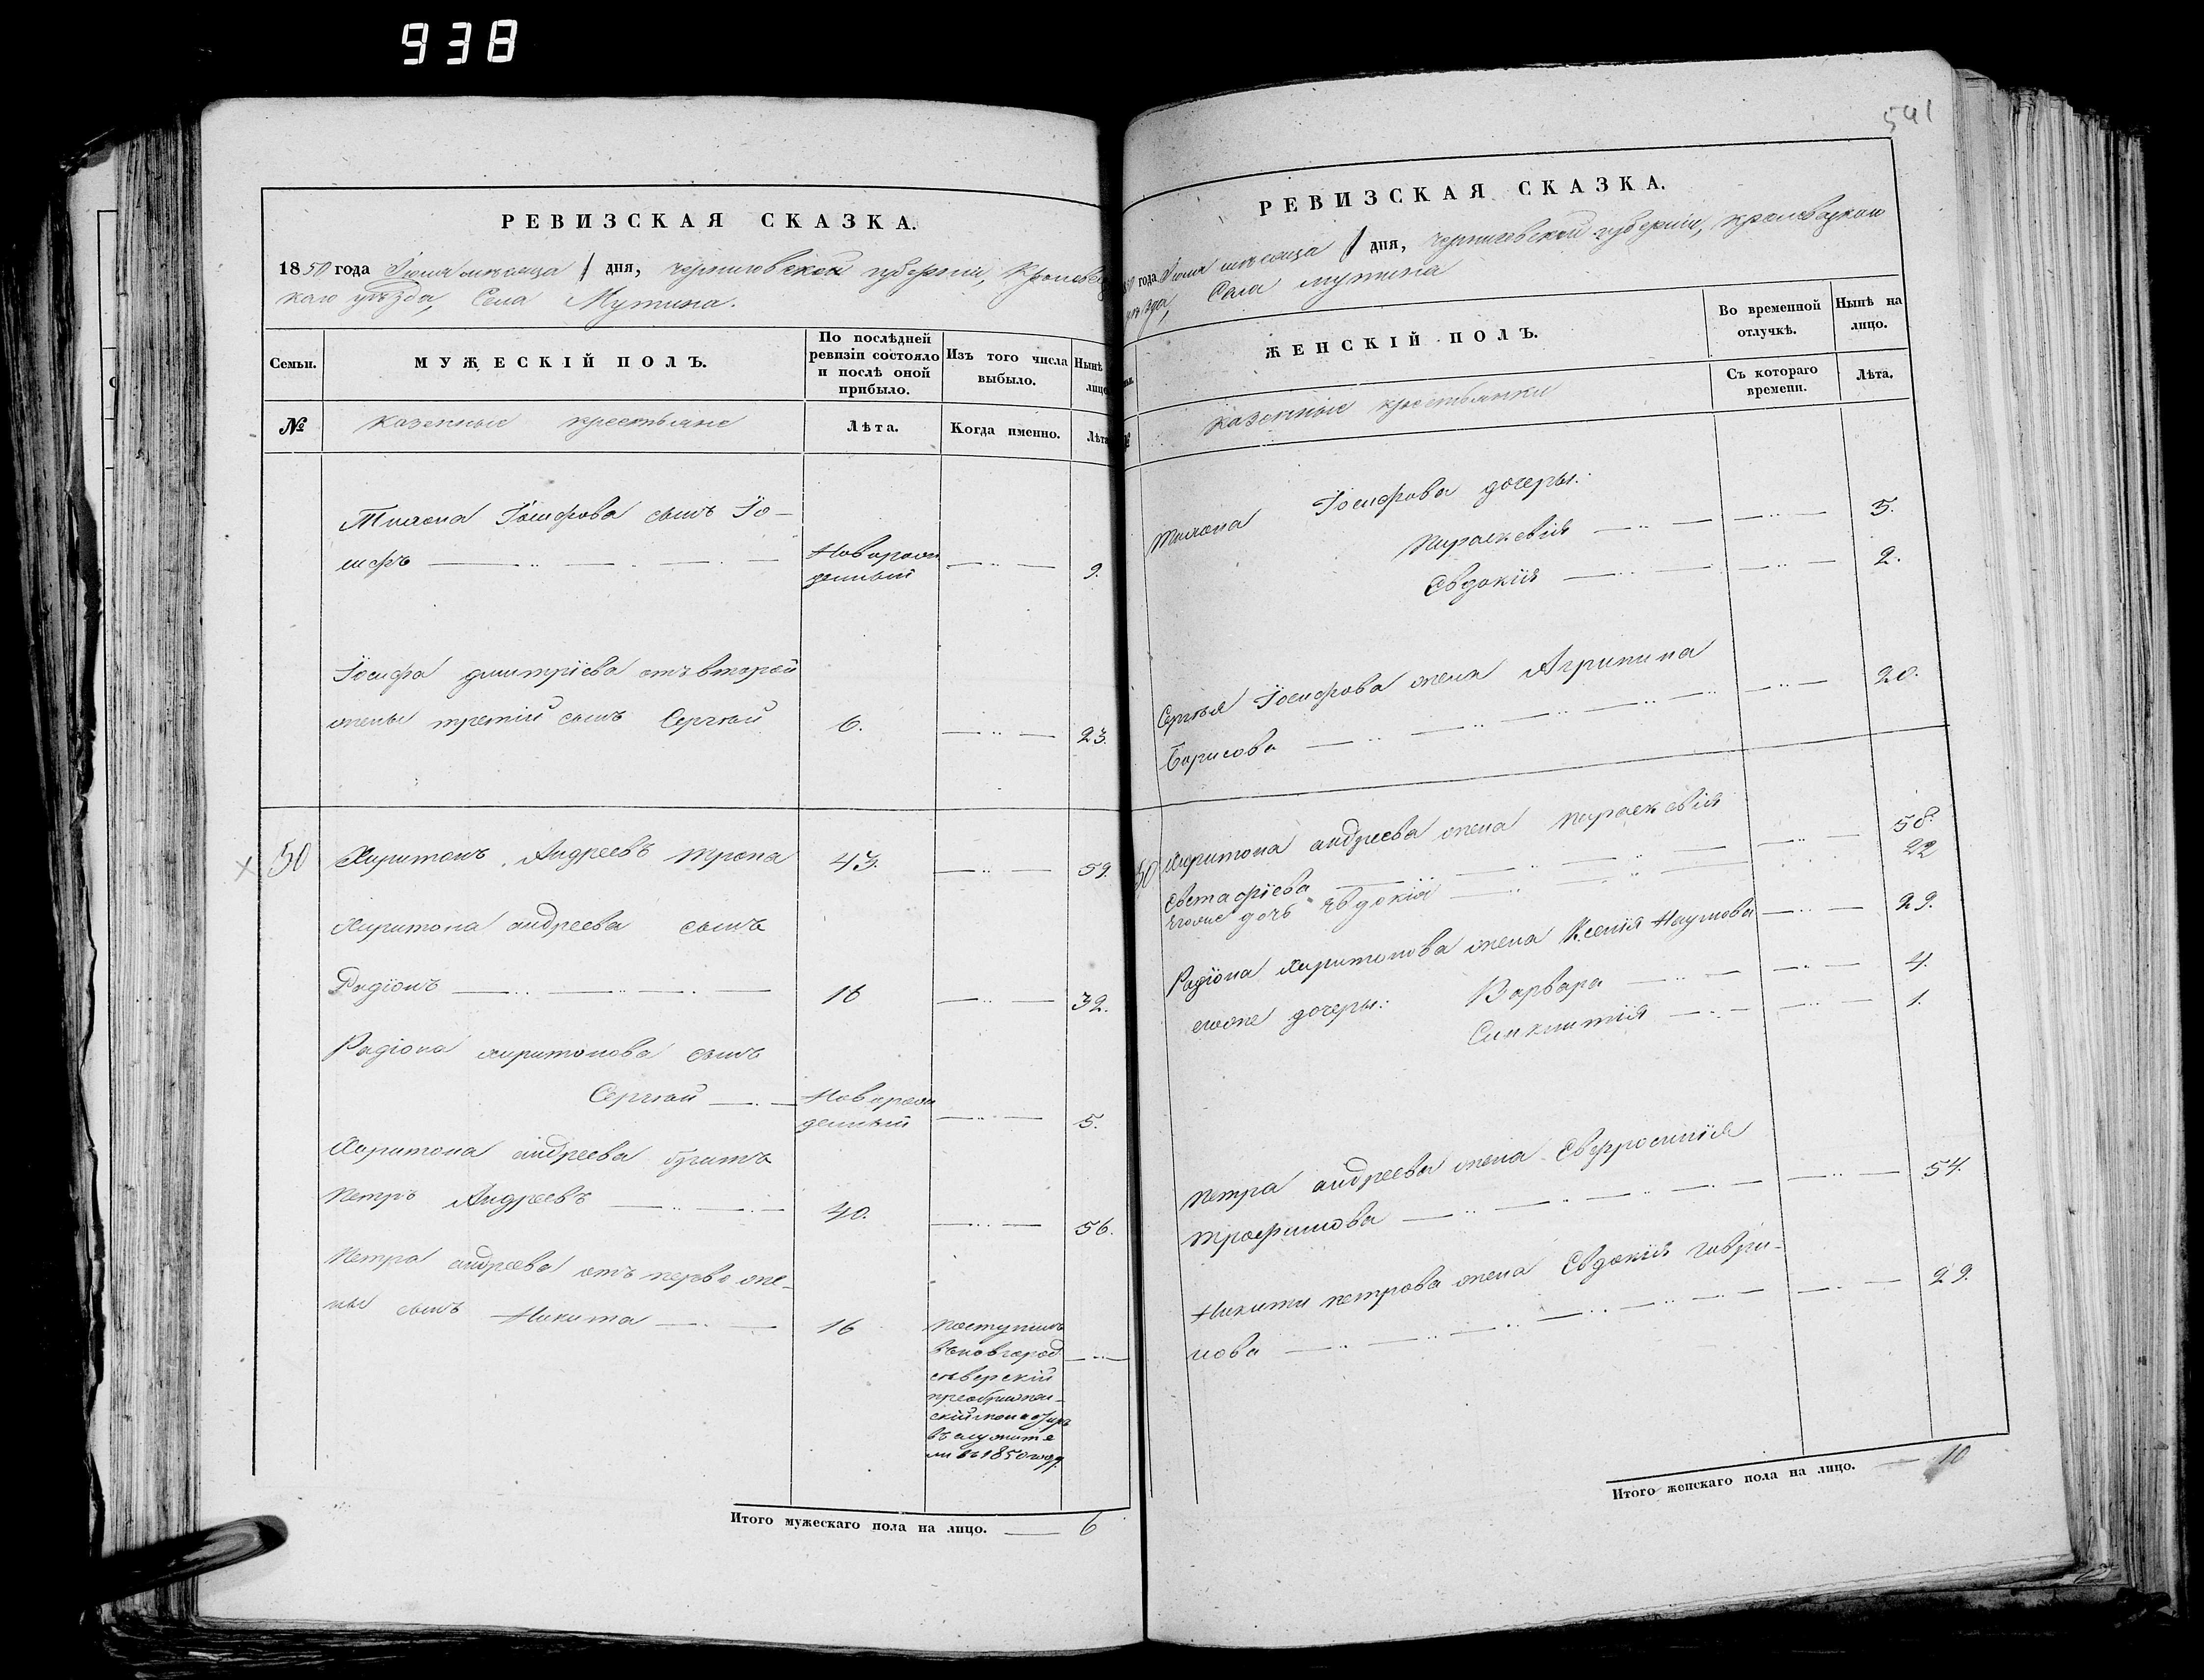 938
РЕВИЗСКАЯ СКАЗКА.
1850 года Іюня мѣсяца 1 дня, Черниговской губерніи, Кролевец
каго уѣзда, Села Мутина.
Семьи.
МУЖЕСКІЙ ПОЛЪ.
По послѣдней
ревизіи состояло
и послѣ оной
прибыло.
Изъ того числа
выбыло.
Нынѣ
лицо
№
Казенные крестьяне
Лѣта.
Когда именно.
Лѣта
Тихона Іосифова сынъ Іо-
сифъ
Новорож
денный
9.
Іосифа Дмитріева отъ второй
жены третій сынъ Сергѣй
6.
23.
50
Харитонъ Андреевъ Трона
43.
59.
Харитона Андреева сынъ
Радіонъ
16
32.
Радіона Харитонова сынъ
Сергѣй
Новорож
денный
5.
Харитона Андреева братъ
Петръ Андреевъ
40.
56.
Петра Андреева отъ перво же-
ны сынъ Никита
16
Поступилъ
въ новгород
сѣверскій
преображен-
скій монастыр
въ служите
ли въ 1850 году.
Итого мужескаго пола на лицо.
6
541
РЕВИЗСКАЯ СКАЗКА.
50 года Іюня мѣсяца 1 дня, Черниговской губерніи, Кролевецкаго
уѣзда, Села Мутина
ЖЕНСКІЙ ПОЛЪ.
Во временной
отлучкѣ.
Нынѣ на
лицо.
Съ котораго
времени.
Лѣта.
Казенные крестьянки
Тихона Іосифова дочеры:
Параскевія
5.
Евдокія
2.
Сергѣя Іосифова жена Агрипина
Борисова
20.
50
Харитона Андреева жена Параскевія
Евстафіева
58.
егоже дочь Евдокія
22
Радіона Харитонова жена Ксенія Наумова
29.
егоже дочеры: Варвара
4.
Синклитія
1.
Петра Андреева жена Евфросинія
Трофимова
54.
Никиты Петрова жена Евдокія Гаври-
лова
29.
Итого женскаго пола на лицо.
10